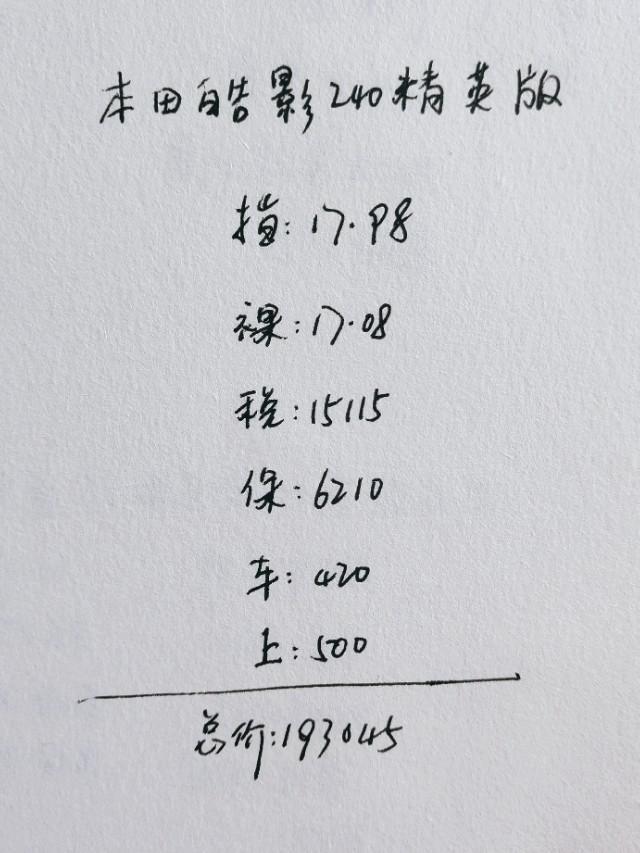 本田皓影240精英版
指:17.98
裸:17.08
税:15115
保:6210
车:420
上:500
总价:193045